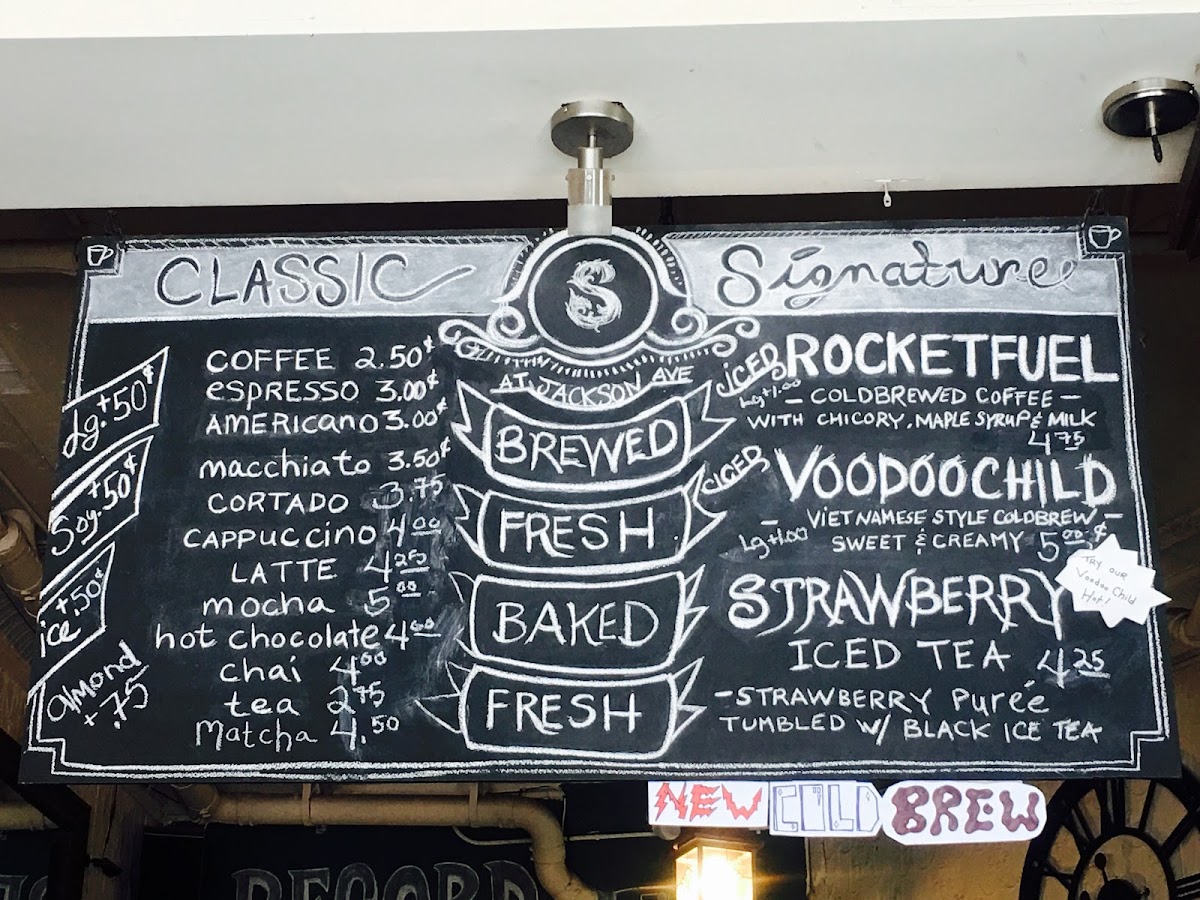 CLASSIC
Lg. +.50¢
Soy. +.50¢
ice +.50¢
almond
+.75
COFFEE 2.50¢
espresso 3.00¢
AMERICANO 3.00¢
macchiato 3.50¢
CORTADO 3.75
CAPPUCCINO 4.00
LATTE 4.25
mocha 5.00
hot chocolate 4.00
chai 4.00
tea 2.75
Matcha 4.50
S
AT JACKSON AVE
BREWED
FRESH
BAKED
FRESH
Signature
ICED ROCKETFUEL
Lg+1.00
- COLDBREWED COFFEE -
WITH CHICORY, MAPLE SYRUP & MILK
4.75
ICED VOODOOCHILD
- VIETNAMESE STYLE COLDBREW -
Lg+1.00
SWEET & CREAMY 5.00¢
TRY OUR
Voodoo Child
Hot!
STRAWBERRY
ICED TEA 4.25
- STRAWBERRY Purée
TUMBLED W/ BLACK ICE TEA
NEW COLD BREW
RECORD